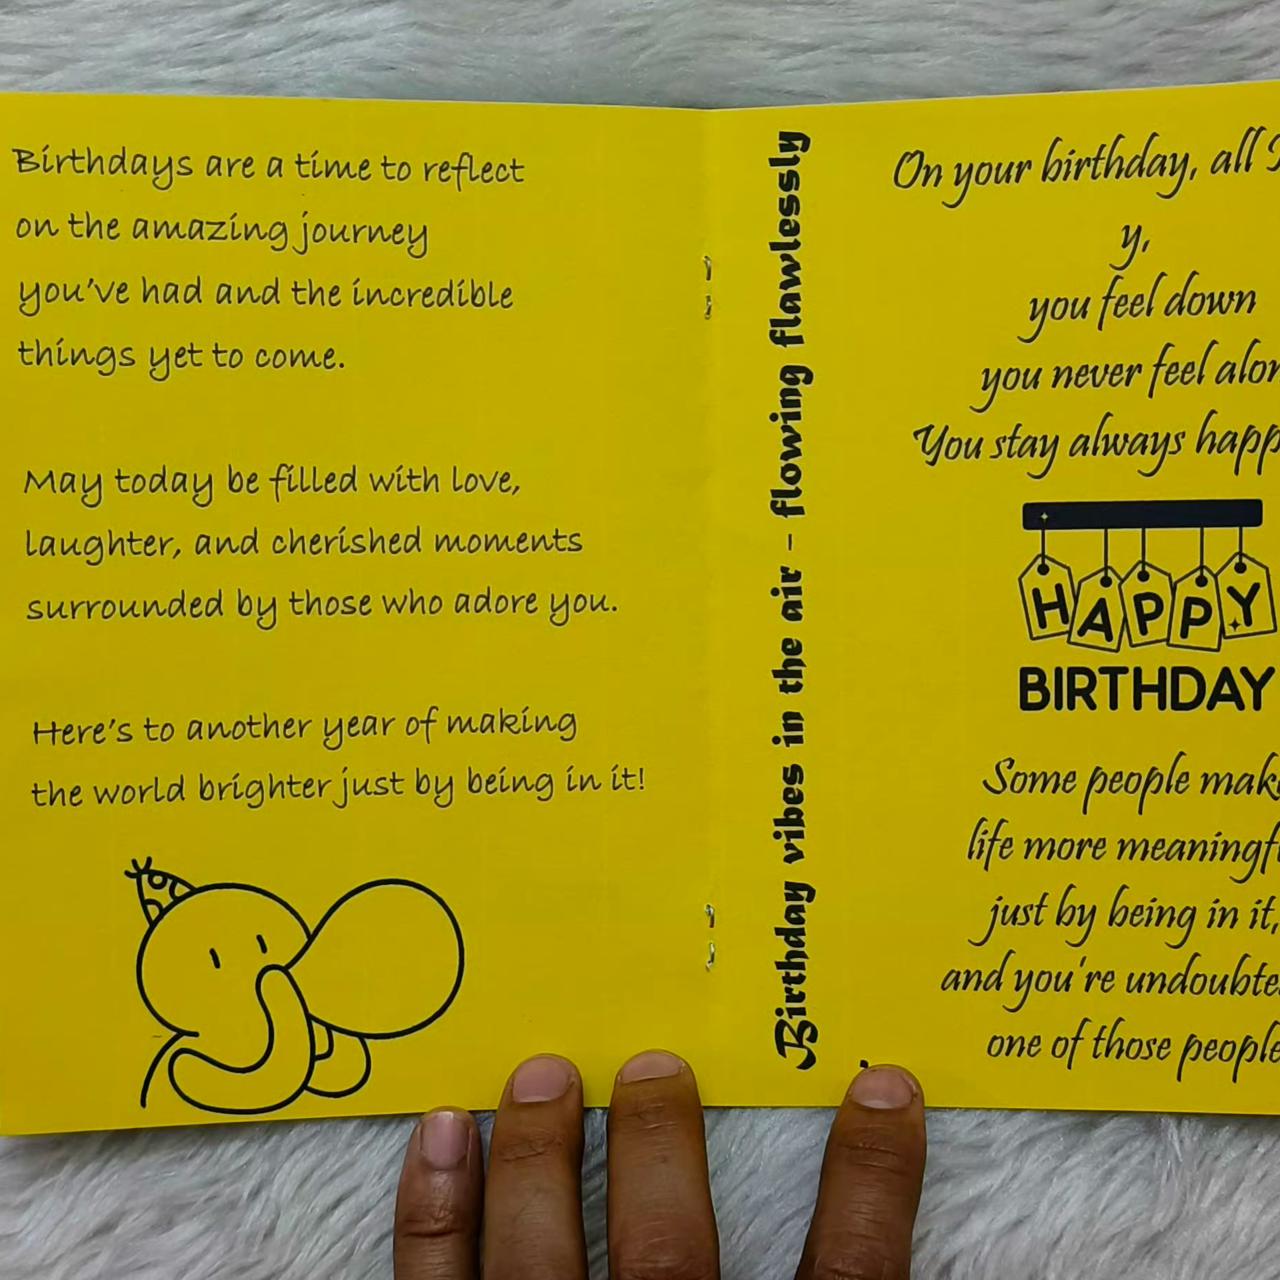 Birthdays are a time to reflect
on the amazing journey
you've had and the incredible
things yet to come.
May today be filled with love,
laughter, and cherished moments
surrounded by those who adore you.
Here's to another year of making
the world brighter just by being in it!
Birthday vibes in the air - flowing flawlessly
On your birthday, all
y,
you feel down
you never feel
You stay always
HAPPY
BIRTHDAY
Some people
life more
just by being in it,
and you're
one of those people